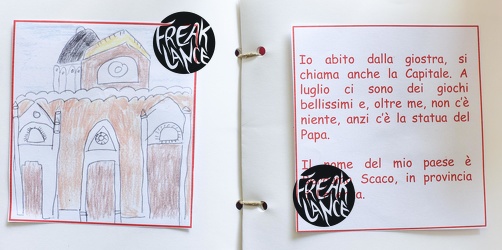 FREAK
LANCE
Io abito dalla giostra, si
chiama anche la Capitale. A
luglio ci sono dei giochi
bellissimi e, oltre me, non c'è
niente, anzi c'è la statua del
Papa.
Il nome del mio paese è
Scaco, in provincia
a.
FREAK
LANCE